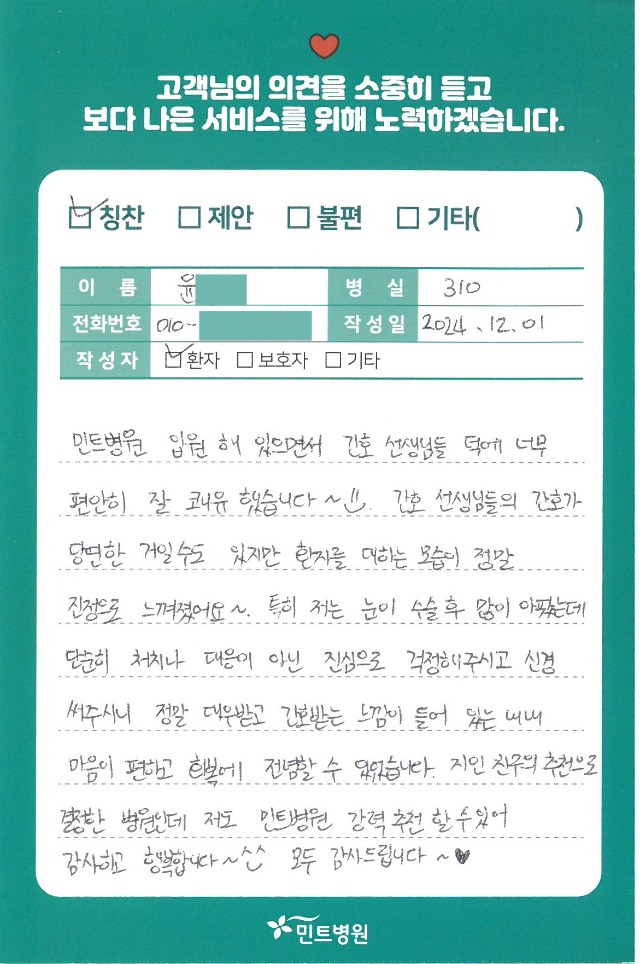 고객님의 의견을 소중히 듣고
보다 나은 서비스를 위해 노력하겠습니다.
칭찬 제안 불편 기타( )
이 름 윤 병 실 310
전화번호 010- 작성일 2024.12.01
작성자 환자 보호자 기타
민트병원 입원 해 있으면서 간호 선생님들 덕에 너무
편안히 잘 케어 했습니다~ 간호 선생님들의 간호가
당연한 거일수도 있지만 환자를 대하는 모습이 정말
진정으로 느껴졌어요~. 특히 저는 눈이 수술 후 많이 아팠는데
단순히 처치나 대응이 아닌 진심으로 걱정해주시고 신경
써주시니 정말 대우받고 간호받는 느낌이 들어 있는 내내
마음이 편하고 회복에 전념할 수 있었습니다. 지인 친구의 추천으로
결정한 병원인데 저도 민트병원 강력 추천 할 수 있어
감사하고 행복합니다~^^ 모두 감사드립니다~♥
민트병원